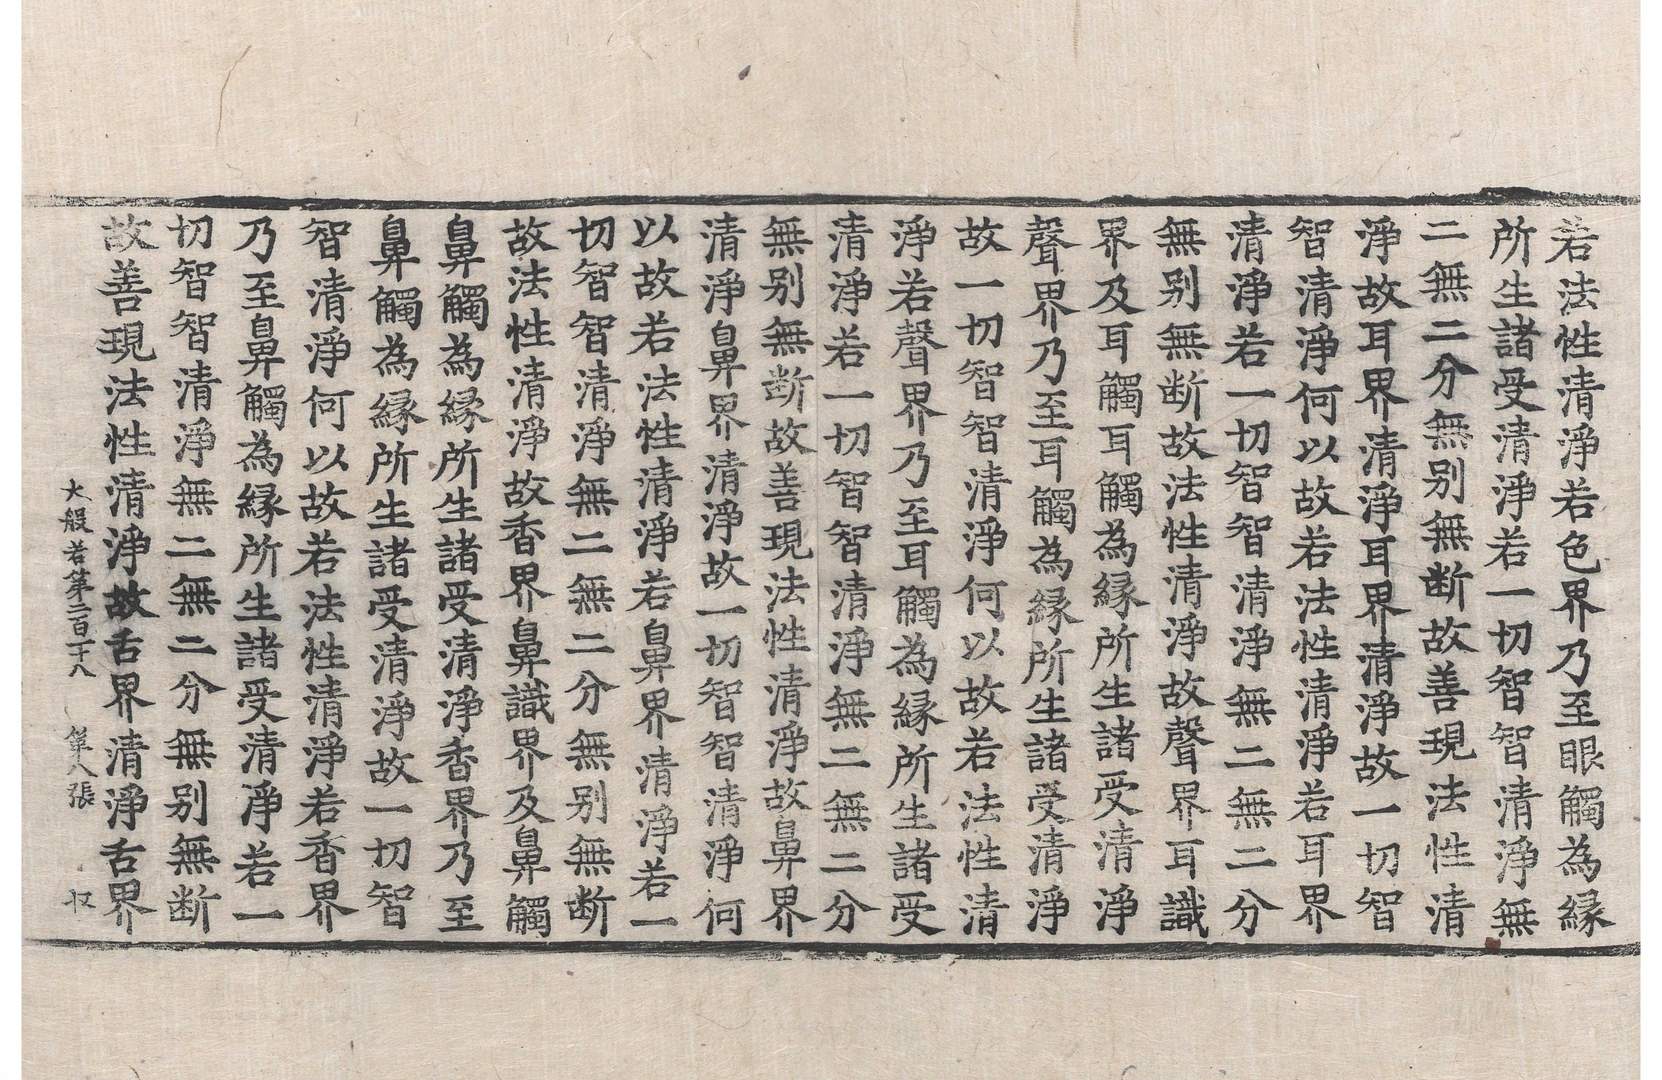 若法性清淨若色界乃至眼觸為縁
所生諸受清淨若一切智智清淨無
二無二分無别無断故善現法性清
淨故耳界清淨耳界清淨故一切智
智清淨何以故若法性清淨若耳界
清淨若一切智智清淨無二無二分
無别無断故法性清淨故聲界耳識
界及耳觸耳觸為縁所生諸受清淨
聲界乃至耳觸為縁所生諸受清淨
故一切智智清淨何以故若法性清
淨若聲界乃至耳觸為縁所生諸受
清淨若一切智智清淨無二無二分
無别無断故善現法性清淨故鼻界
清淨鼻界清淨故一切智智清淨何
以故若法性清淨若鼻界清淨若一
切智智清淨無二無二分無别無断
故法性清淨故香界鼻識界及鼻觸
鼻觸為縁所生諸受清淨香界乃至
鼻觸為縁所生諸受清淨故一切智
智清淨何以故若法性清淨若香界
乃至鼻觸為縁所生諸受清淨若一
切智智清淨無二無二分無别無断
故善現法性清淨故舌界清淨舌界
大般若第二百十八 第八張 収